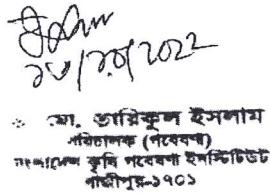 ২০২২
মো. তারিকুল ইসলাম
পরিচালক (গবেষণা)
বাংলাদেশ কৃষি গবেষণা ইনস্টিটিউট
গাজীপুর-১৭০১